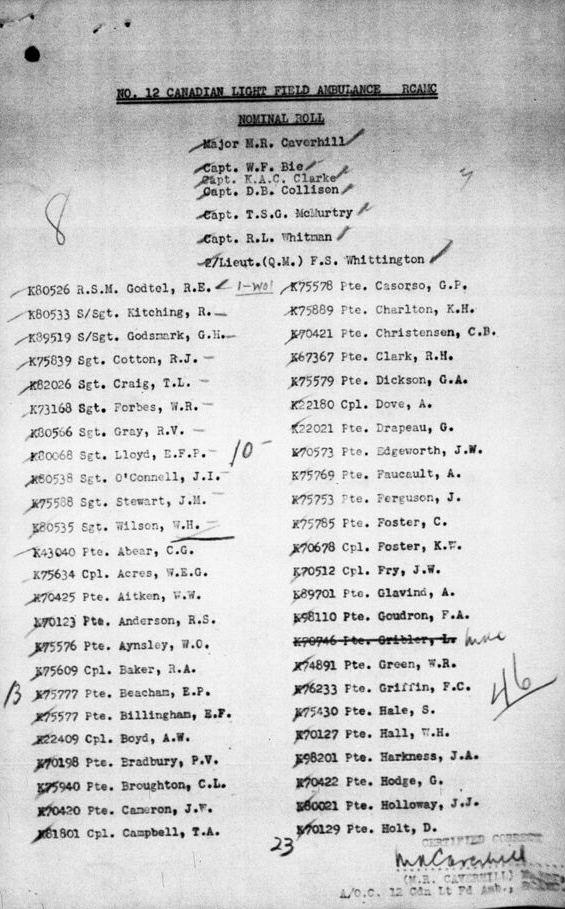 NO. 12 CANADIAN LIGHT FIELD AMBULANCE RCAMC
NOMINAL ROLL
Major M.R. Caverhill
Capt. W.F. Bie
Capt. K.A.C. Clarke
Capt. D.B. Collison
8
Capt. T.S.G. McMurtry
Capt. R.L. Whitman
2/Lieut.(Q.M.) F.S. Whittington
K80526 R.S.M. Godtel, R.E. 1-WO1
K80533 S/Sgt. Kitching, R.
K89519 S/Sgt. Godsmark, G.H.
K75839 Sgt. Cotton, R.J.
K82026 Sgt. Craig, T.L.
K73168 Sgt. Forbes, W.R.
K80566 Sgt. Gray, R.V.
K80068 Sgt. Lloyd, E.F.P. 10
K80538 Sgt. O'Connell, J.I.
K75588 Sgt. Stewart, J.M.
K80535 Sgt. Wilson, W.H.
K43040 Pte. Abear, C.G.
K75634 Cpl. Acres, W.E.G.
K70425 Pte. Aitken, W.W.
K70123 Pte. Anderson, R.S.
K75576 Pte. Aynsley, W.O.
K75609 Cpl. Baker, R.A.
B K75777 Pte. Beacham, E.P.
K75577 Pte. Billingham, E.F.
K22409 Cpl. Boyd, A.W.
K70198 Pte. Bradbury, P.V.
K75940 Pte. Broughton, C.L.
K70420 Pte. Cameron, J.W.
K81801 Cpl. Campbell, T.A.
23
K75578 Pte. Casorso, G.P.
K75889 Pte. Charlton, K.H.
K70421 Pte. Christensen, C.B.
K67367 Pte. Clark, R.H.
K75579 Pte. Dickson, G.A.
K22180 Cpl. Dove, A.
K22021 Pte. Drapeau, G.
K70573 Pte. Edgeworth, J.W.
K75769 Pte. Faucault, A.
K75753 Pte. Ferguson, J.
K75785 Pte. Foster, C.
K70678 Cpl. Foster, K.W.
K70512 Cpl. Fry, J.W.
K89701 Pte. Glavind, A.
K98110 Pte. Goudron, F.A.
K70746 Pte. Gribler, L.
K74891 Pte. Green, W.R.
K76233 Pte. Griffin, F.C.
46
K75430 Pte. Hale, S.
K70127 Pte. Hall, W.H.
K98201 Pte. Harkness, J.A.
K70422 Pte. Hodge, G.
K80021 Pte. Holloway, J.J.
K70129 Pte. Holt, D.
CERTIFIED CORRECT
MRCaverhill
(M.R. CAVERHILL)
A/O.C. 12 Cdn Lt Fd Amb.,